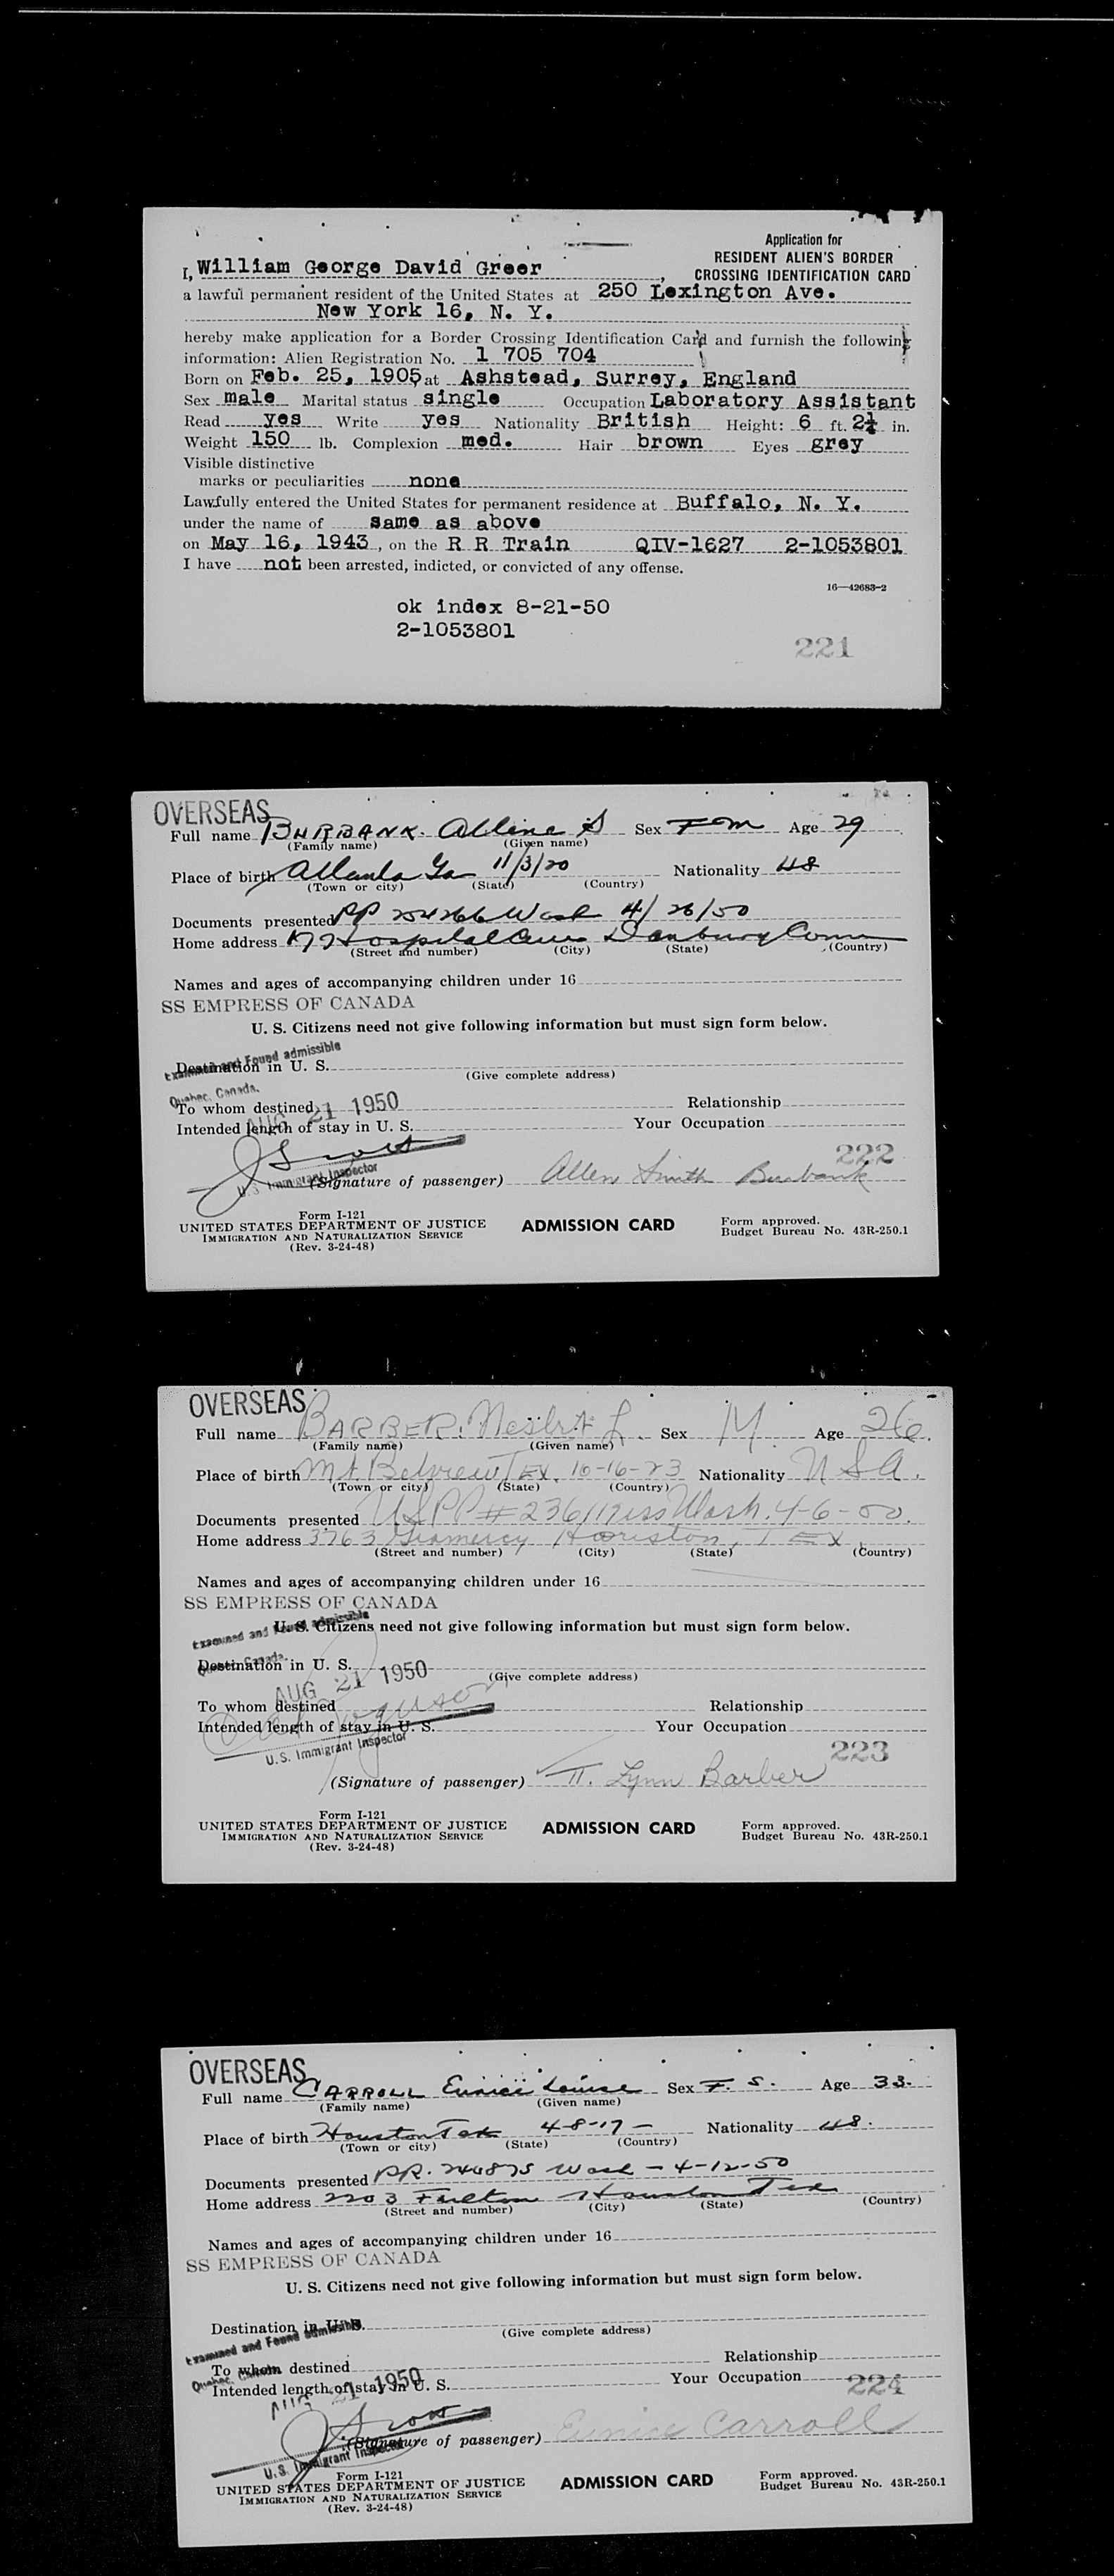 Application for
RESIDENT ALIEN'S BORDER
CROSSING IDENTIFICATION CARD
I, William George David Greer,
a lawful permanent resident of the United States at 250 Lexington Ave.
New York 16, N. Y.
hereby make application for a Border Crossing Identification Card and furnish the following
information: Alien Registration No. 1 705 704
Born on Feb. 25, 1905 at Ashstead, Surrey, England
Sex male Marital status single Occupation Laboratory Assistant
Read yes Write yes Nationality British Height: 6 ft. 2¼ in.
Weight 150 lb. Complexion med. Hair brown Eyes grey
Visible distinctive
marks or peculiarities none
Lawfully entered the United States for permanent residence at Buffalo, N. Y.
under the name of same as above
on May 16, 1943, on the R R Train QIV-1627 2-1053801
I have not been arrested, indicted, or convicted of any offense.
16—42683-2
ok index 8-21-50
2-1053801
221
OVERSEAS
Full name BURBANK. Allene S Sex Fem Age 29
(Family name) (Given name)
Place of birth Atlanta Ga 11/3/20 Nationality US
(Town or city) (State) (Country)
Documents presented PP 254266 Wash 4/26/50
Home address Hospital Danbury Conn
(Street and number) (City) (State) (Country)
Names and ages of accompanying children under 16
SS EMPRESS OF CANADA
U. S. Citizens need not give following information but must sign form below.
Examined and Found admissible
Destination in U. S.
(Give complete address)
Quebec, Canada.
To whom destined Relationship
AUG 21 1950
Intended length of stay in U. S. Your Occupation
222
U.S. Immigrant Inspector
(Signature of passenger) Allen Smith Burbank
Form I-121
UNITED STATES DEPARTMENT OF JUSTICE ADMISSION CARD Form approved.
IMMIGRATION AND NATURALIZATION SERVICE Budget Bureau No. 43R-250.1
(Rev. 3-24-48)
OVERSEAS
Full name BARBER. Nesbit L. Sex M Age 26.
(Family name) (Given name)
Place of birth Mt. Belvieu TEX. 10-16-23 Nationality USA.
(Town or city) (State) (Country)
Documents presented USPP # Wash. 4-6-50.
Home address 3763 Gramercy Houston, TEX
(Street and number) (City) (State) (Country)
Names and ages of accompanying children under 16
SS EMPRESS OF CANADA
Examined and Found admissible
U. S. Citizens need not give following information but must sign form below.
Quebec, Canada.
Destination in U. S.
(Give complete address)
AUG 21 1950
To whom destined Relationship
Intended length of stay in U. S. Your Occupation
U.S. Immigrant Inspector
223
(Signature of passenger) Lynn Barber
Form I-121
UNITED STATES DEPARTMENT OF JUSTICE ADMISSION CARD Form approved.
IMMIGRATION AND NATURALIZATION SERVICE Budget Bureau No. 43R-250.1
(Rev. 3-24-48)
OVERSEAS
Full name CARROLL Eunice Louise Sex F. S. Age 33.
(Family name) (Given name)
Place of birth Houston Tex 4-8-17 - Nationality US.
(Town or city) (State) (Country)
Documents presented PP. 244875 Wash - 4-12-50
Home address 2203 Fulton Houston Tex
(Street and number) (City) (State) (Country)
Names and ages of accompanying children under 16
SS EMPRESS OF CANADA
U. S. Citizens need not give following information but must sign form below.
Destination in U. S.
(Give complete address)
Examined and Found admissible
To whom destined Relationship
Quebec, Canada
Intended length of stay in U. S. Your Occupation
AUG 21 1950
224
(Signature of passenger) Eunice Carroll
U.S. Immigrant Inspector
Form I-121
UNITED STATES DEPARTMENT OF JUSTICE ADMISSION CARD Form approved.
IMMIGRATION AND NATURALIZATION SERVICE Budget Bureau No. 43R-250.1
(Rev. 3-24-48)